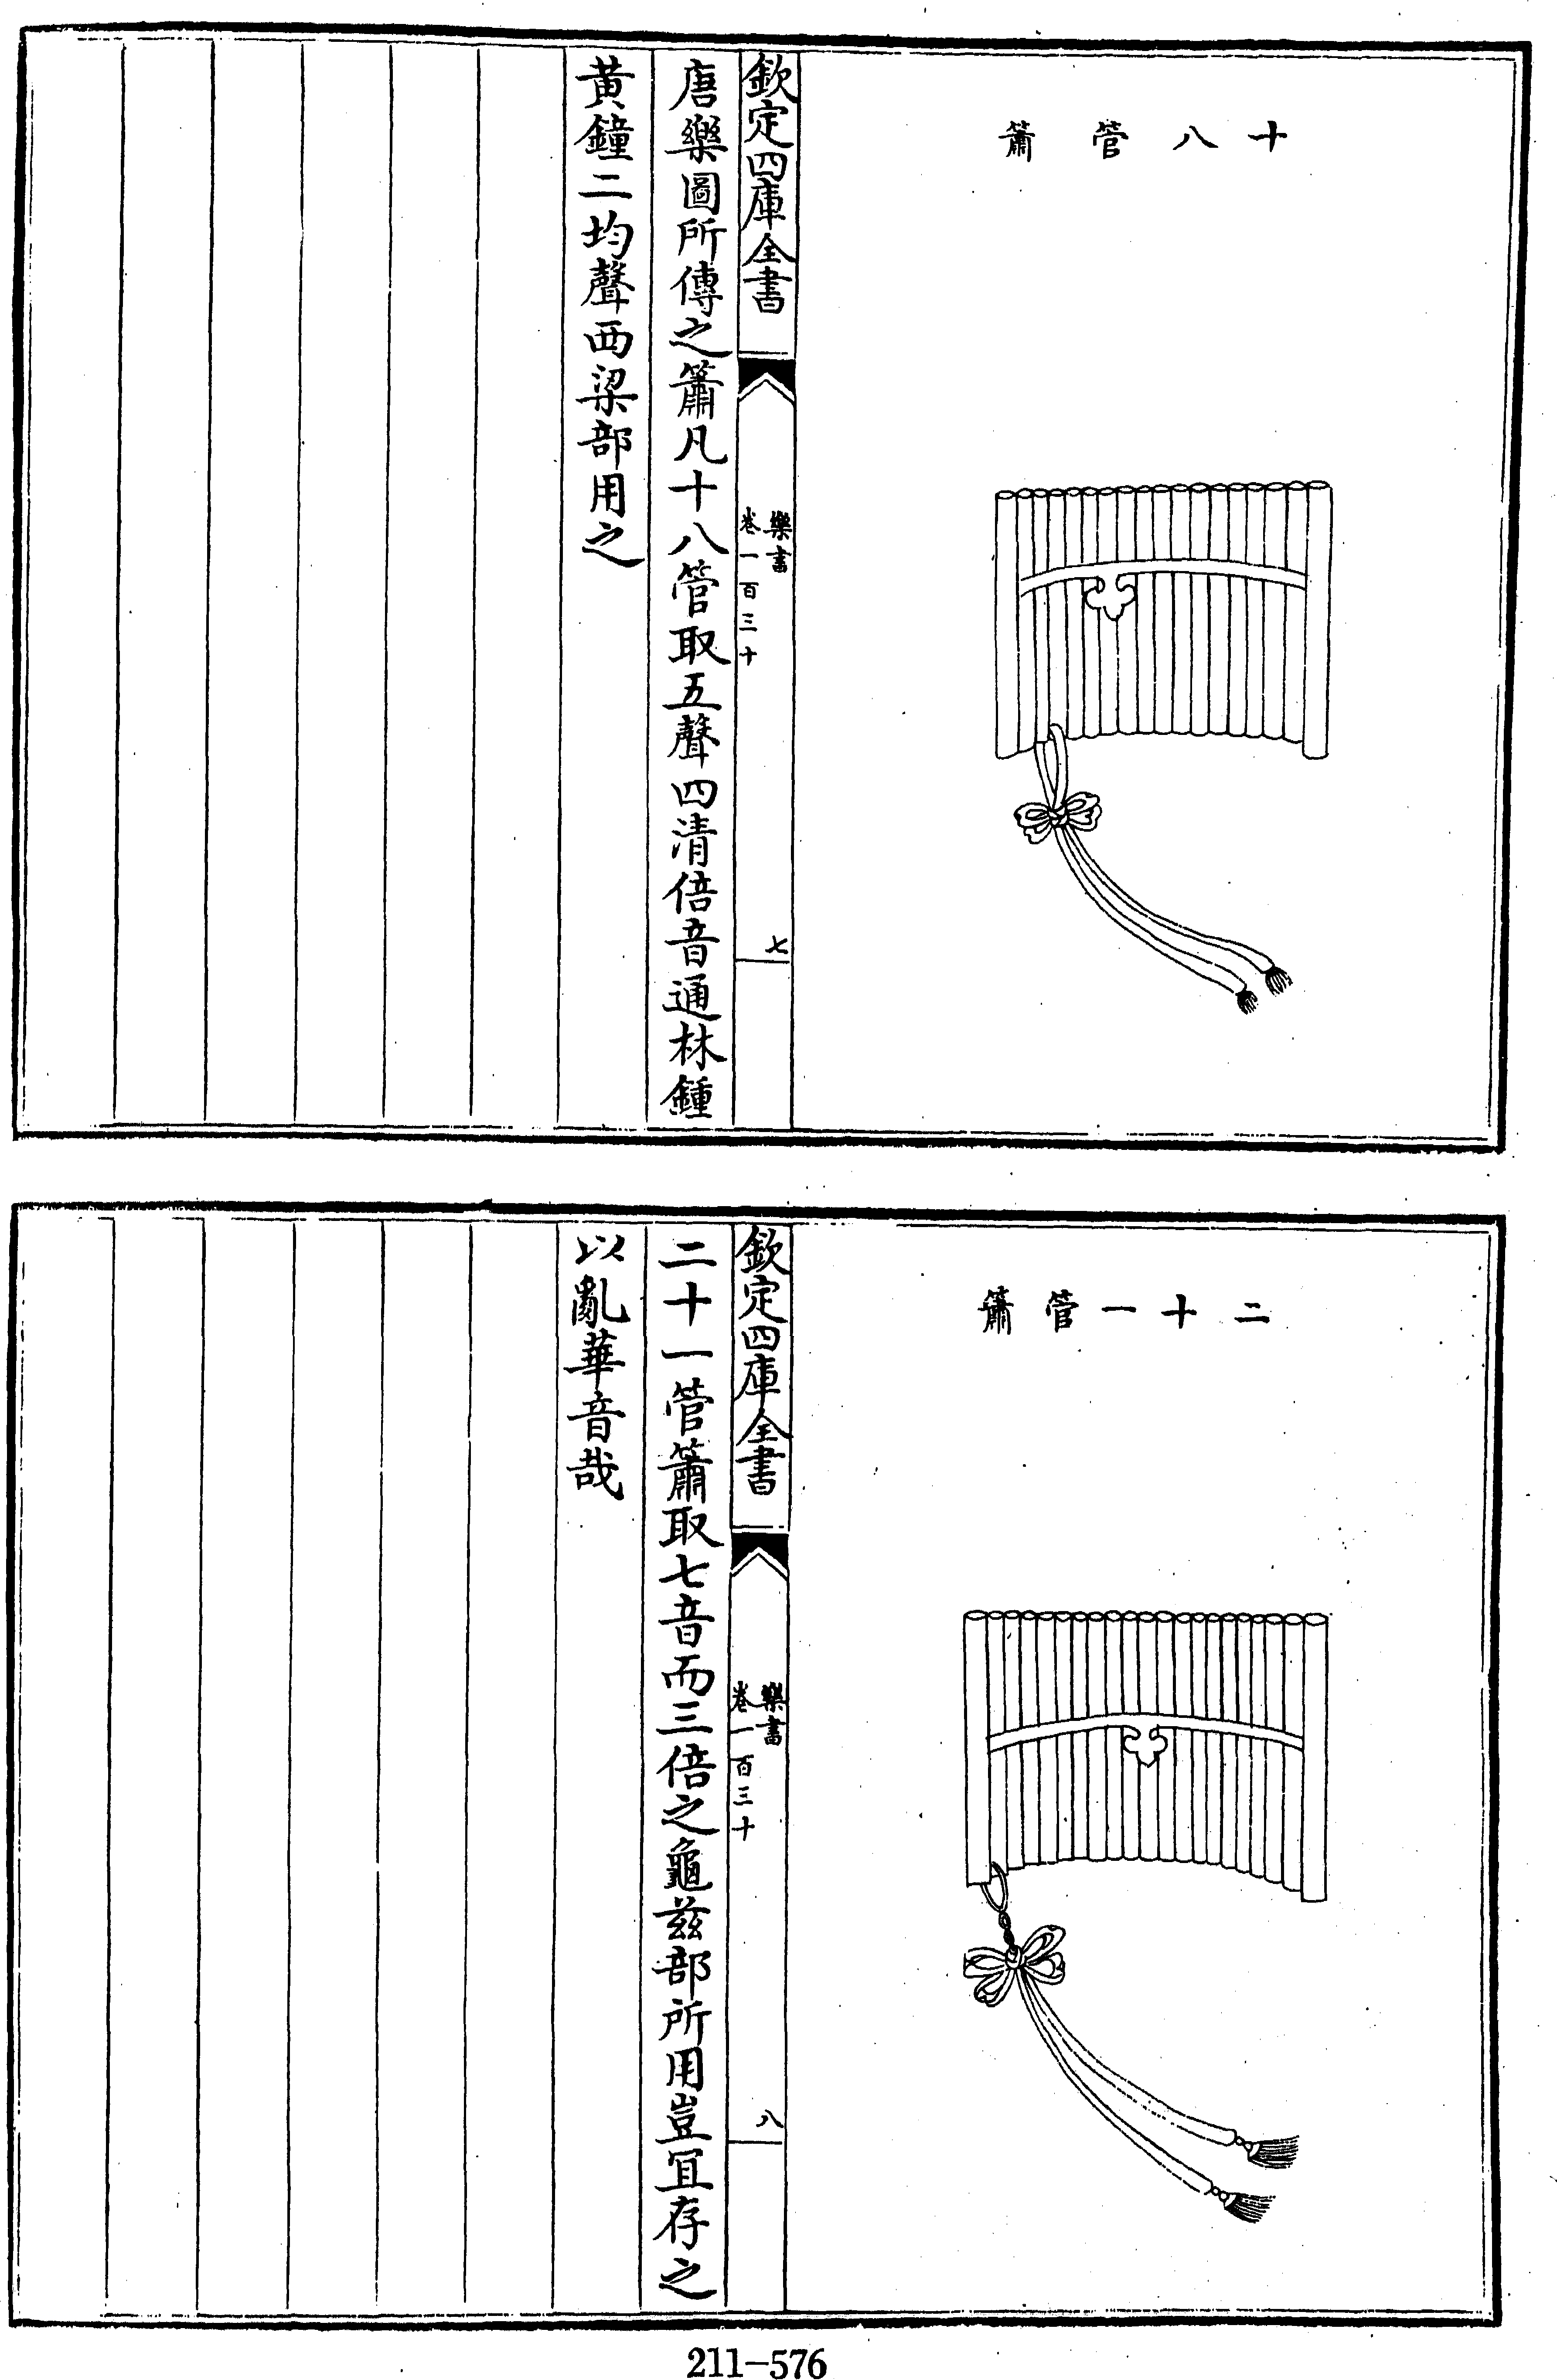 十八管簫
欽定四庫全書
樂書
卷一百三十
七
唐樂圖所傳之簫凡十八管取五聲四清倍音通林鍾
黃鐘二均聲西梁部用之
二十一管簫
欽定四庫全書
樂書
卷一百三十
八
二十一管簫取七音而三倍之龜茲部所用豈冝存之
以亂華音哉
211-576